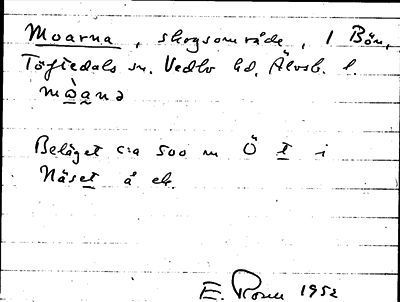 Moarna, skogsområde, 1 Bön,
Töftedals sn. Vedbo hd, Älvsb. l.
mòa̰nə
Beläget c:a 500 m Ö t i
Näset å ek.
E. Rosén 1952